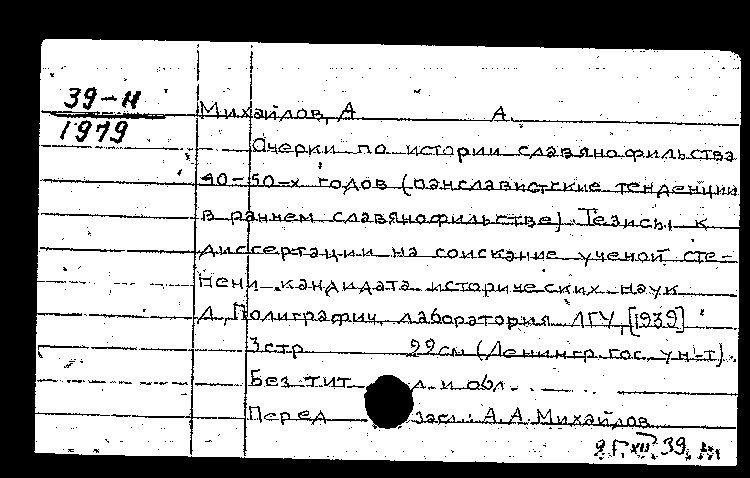 39-н
1979
Михайлов, А А.
Очерки по истории славянофильства
40-50-х годов (панславистские тенденции
в раннем славянофильстве). Тезисы к
диссертации на соискание ученой сте-
пени кандидата исторических наук
Л., Полиграфич. лаборатория ЛГУ, [1939]
3 стр 22 см (Ленингр. гос. ун-т).
Без тит л. и обл.
Перед загл.: А. А. Михайлов
XII 39